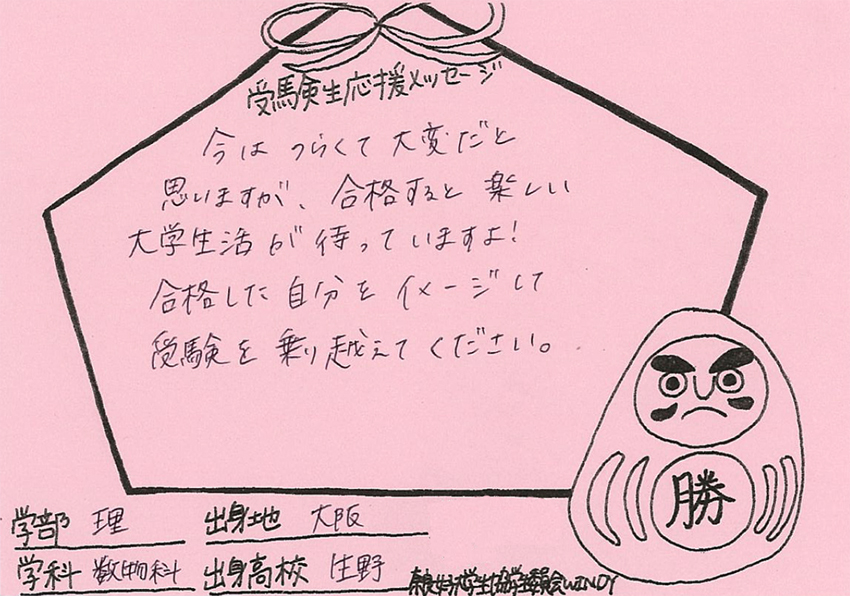 受験生応援メッセージ
今は つらくて 大変だと
思いますが、合格すると 楽しい
大学生活が 待っていますよ!
合格した 自分を イメージして
受験を 乗り越えて ください。
勝
学部 理 出身地 大阪
学科 数物科 出身高校 生野
奈良女子大学生協学生委員会WINDY